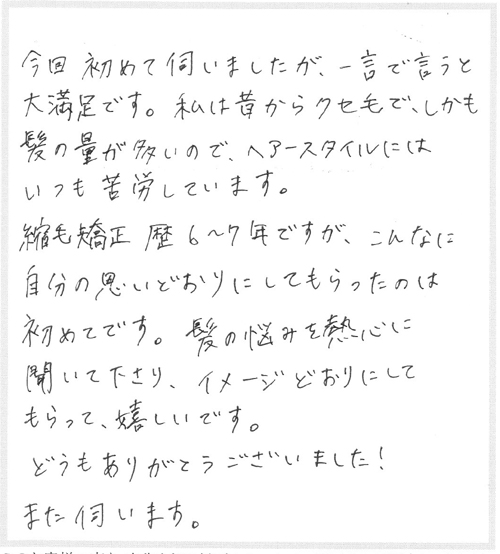 今回 初めて伺いましたが、一言で言うと
大満足です。私は昔からクセ毛で、しかも
髪の量が多いので、ヘアースタイルには
いつも苦労しています。
縮毛矯正 歴6〜7年ですが、こんなに
自分の思いどおりにしてもらったのは
初めてです。髪の悩みを熱心に
聞いて下さり、イメージどおりにして
もらって、嬉しいです。
どうもありがとうございました!
また伺います。